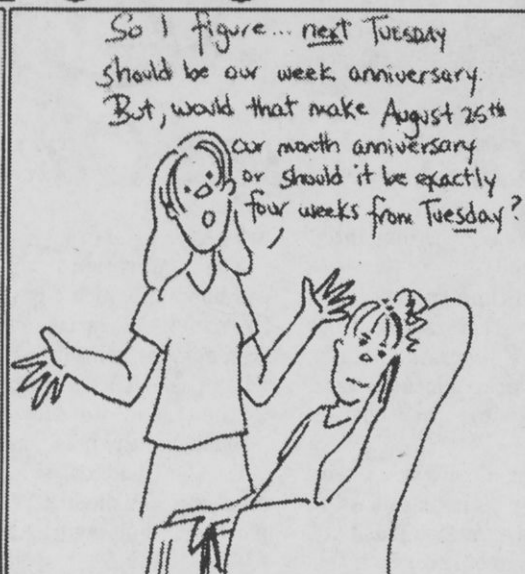 So I figure... next Tuesday
should be our week anniversary.
But, would that make August 25th
our month anniversary
or should it be exactly
four weeks from Tuesday?